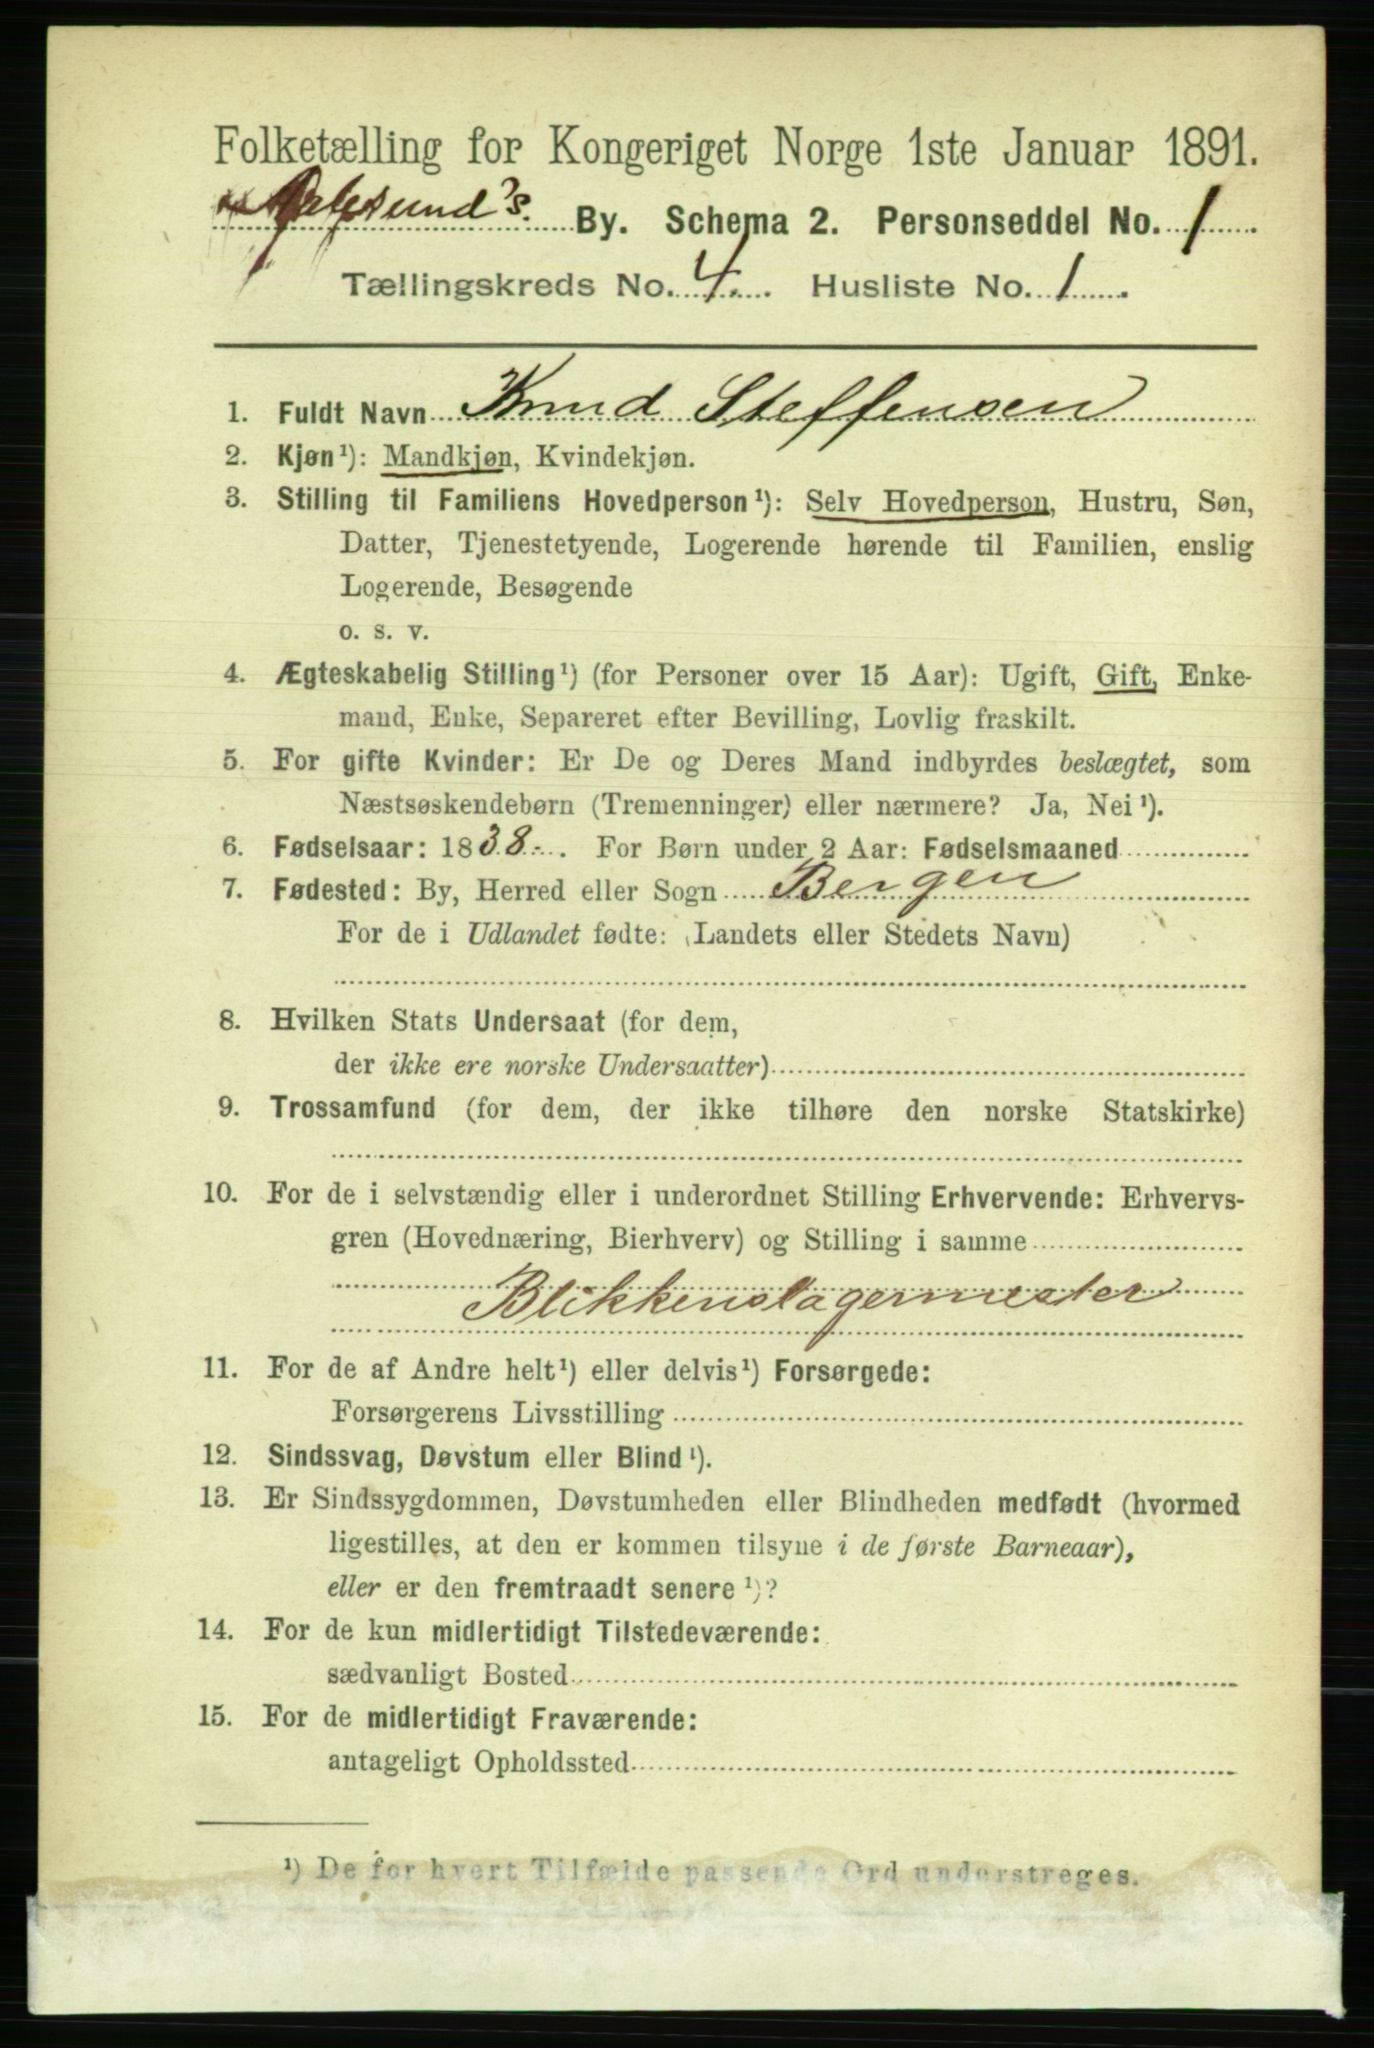 Folketælling for Kongeriget Norge 1ste Januar 1891.
Aalesund's. By. Schema 2. Personseddel No. 1
Tællingskreds No. 4. Husliste No. 1
1. Fuldt Navn Knud Steffensen
2. Kjøn¹): Mandkjøn, Kvindekjøn.
3. Stilling til Familiens Hovedperson¹): Selv Hovedperson, Hustru, Søn,
Datter, Tjenestetyende, Logerende hørende til Familien, enslig
Logerende, Besøgende
o. s. v.
4. Ægteskabelig Stilling¹) (for Personer over 15 Aar): Ugift, Gift, Enke-
mand, Enke, Separeret efter Bevilling, Lovlig fraskilt.
5. For gifte Kvinder: Er De og Deres Mand indbyrdes beslægtet, som
Næstsøskendebørn (Tremenninger) eller nærmere? Ja, Nei¹).
6. Fødselsaar: 1838. For Børn under 2 Aar: Fødselsmaaned
7. Fødested: By, Herred eller Sogn Bergen
For de i Udlandet fødte: (Landets eller Stedets Navn)
8. Hvilken Stats Undersaat (for dem,
der ikke ere norske Undersaatter)
9. Trossamfund (for dem, der ikke tilhøre den norske Statskirke)
10. For de i selvstændig eller i underordnet Stilling Erhvervende: Erhvervs-
gren (Hovednæring, Bierhverv) og Stilling i samme
Blikkenslagermester
11. For de af Andre helt¹) eller delvis¹) Forsørgede:
Forsørgerens Livsstilling
12. Sindssvag, Døvstum eller Blind¹).
13. Er Sindssygdommen, Døvstumheden eller Blindheden medfødt (hvormed
ligestilles, at den er kommen tilsyne i de første Barneaar),
eller er den fremtraadt senere¹)?
14. For de kun midlertidigt Tilstedeværende:
sædvanligt Bosted
15. For de midlertidigt Fraværende:
antageligt Opholdssted
¹) De for hvert Tilfælde passende Ord understreges.